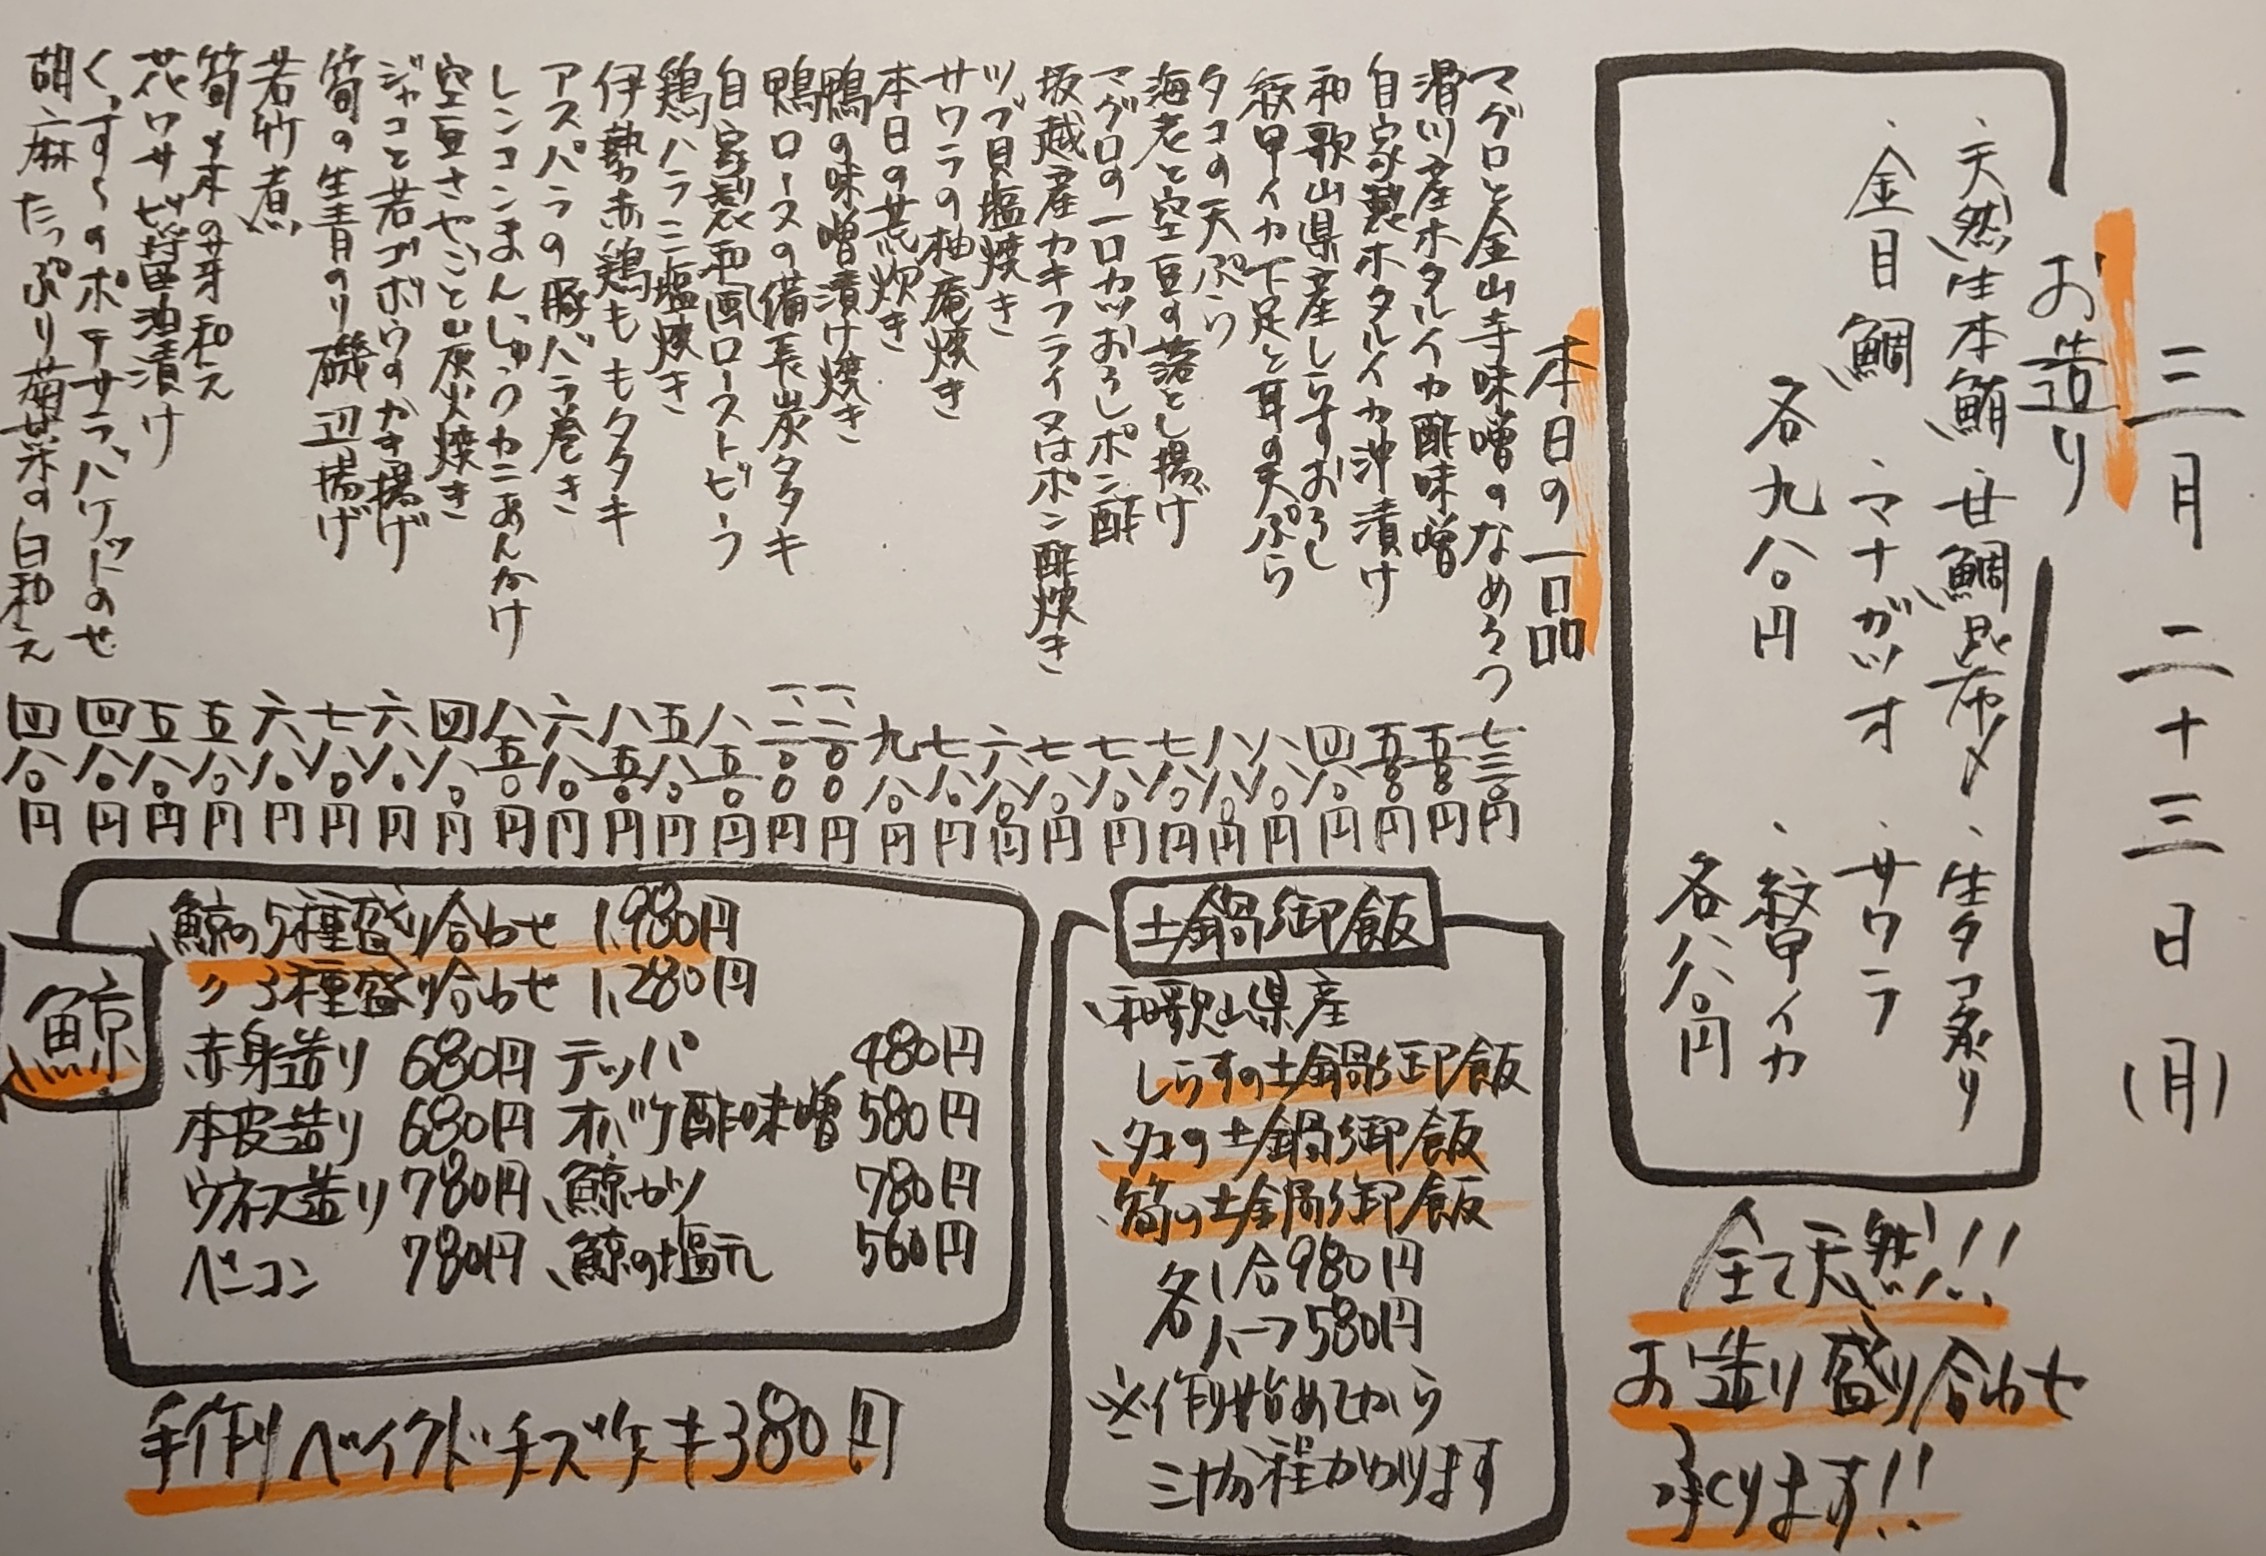 三月二十三日(月)
お造り
、天然生本鮪、甘鯛昆布〆、生タコ炙り
、金目鯛、マナガツオ、サワラ
、紋甲イカ
各九八〇円
各八八〇円
全て天然!!
お造り盛り合わせ
承ります!!
本日の一品
マグロと金山寺味噌のなめろう 七三〇円
滑川産ホタルイカ酢味噌 五五〇円
自家製ホタルイカ沖漬け 五八〇円
和歌山県産しらすおろし 四八〇円
紋甲イカ下足と耳の天ぷら 八八〇円
タコの天ぷら 八八〇円
海老と空豆の落とし揚げ 七八〇円
マグロの一口カツおろしポン酢 七八〇円
坂越産カキフライ又はポン酢焼き 七八〇円
ツブ貝塩焼き 六八〇円
サワラの柚庵焼き 七八〇円
本日の荒炊き 九八〇円
鴨の味噌漬け焼き 一、二〇〇円
鴨ロースの備長炭タタキ 一、二〇〇円
自家製和風ローストビーフ 八五〇円
鶏ハラミ塩焼き 五八〇円
伊勢赤鶏ももタタキ 八五〇円
アスパラの豚バラ巻き 六八〇円
レンコンまんじゅうカニあんかけ 八五〇円
空豆さやごと炭火焼き 四八〇円
ジャコと若ゴボウのかき揚げ 六八〇円
筍の生青のり磯辺揚げ 七八〇円
若竹煮 六八〇円
筍と木の芽和え 五八〇円
花ワサビ醤油漬け 五八〇円
くずしのポテサラ、バケットのせ 四八〇円
胡麻たっぷり菊菜の白和え 四八〇円
土鍋御飯
、和歌山県産
しらすの土鍋御飯
、タコの土鍋御飯
、筍の土鍋御飯
各1合980円
各ハーフ580円
※作り始めてから
三十分程かかります
鯨
鯨の5種盛り合わせ 1,980円
〃3種盛り合わせ 1,280円
赤身造り 680円 テッパ 480円
本皮造り 680円 オバケ酢味噌 580円
ウネス造り 780円 、鯨カツ 780円
ベーコン 780円 、鯨の塩元 560円
手作りベイクドチーズケーキ380円